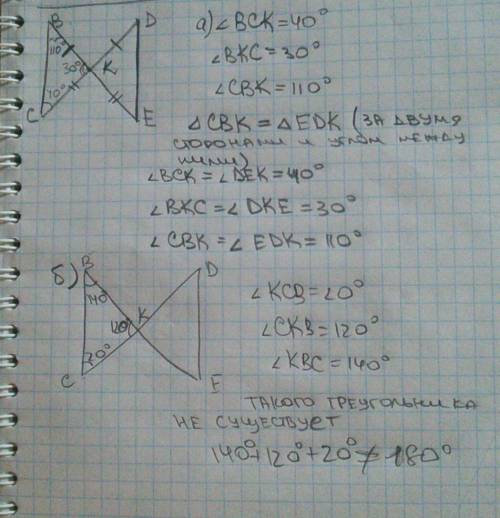 а) ∠BCK=40°
∠BKC=30°
∠CBK=110°
△CBK=△EDK (ЗА ДВУМЯ
СТОРОНАМИ И УГЛОМ МЕЖДУ
НИМИ)
∠BCK=∠DEK=40°
∠BKC=∠DKE=30°
∠CBK=∠EDK=110°
B
D
110°
30°
K
C
E
б)
B
D
140°
120°
K
20°
C
E
∠KCB=20°
∠CKB=120°
∠KBC=140°
ТАКОГО ТРЕУГОЛЬНИКА
НЕ СУЩЕСТВУЕТ
140°+120°+20°≠180°